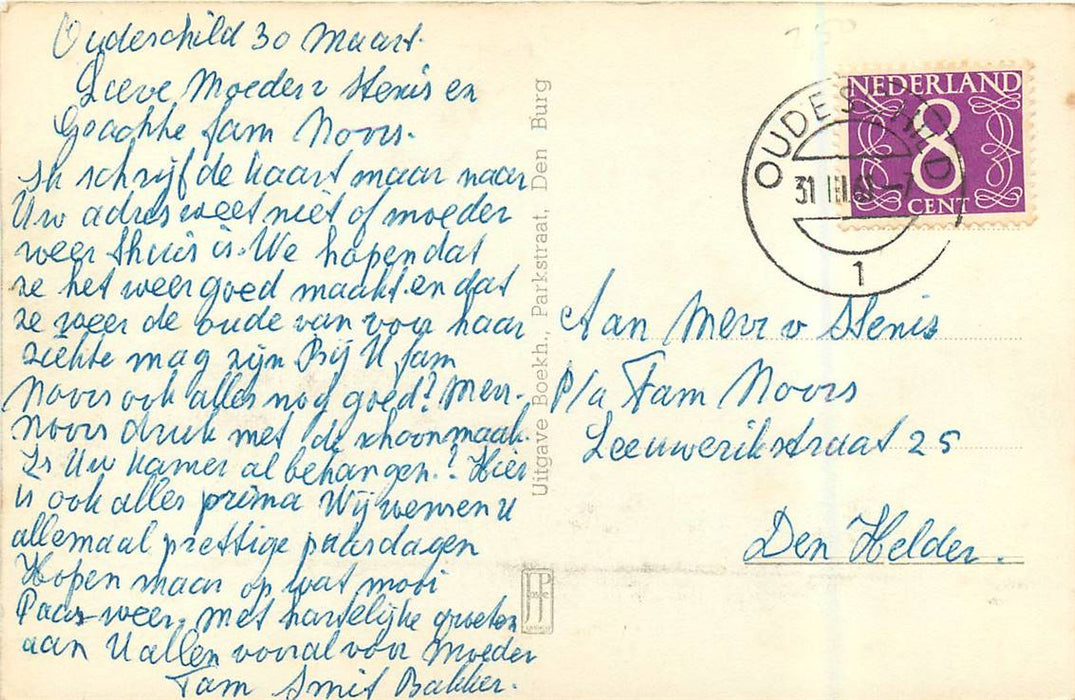 Oudeschild 30 Maart.
Lieve Moeder v Stenis en
Geachte fam Noors.
Ik schrijf de kaart maar naar
Uw adres weet niet of moeder
weer thuis is. We hopen dat
ze het weer goed maakt en dat
ze weer de oude van voor haar
ziekte mag zijn Bij U fam
Noors ook alles nog goed? Mevr.
Noors druk met de schoonmaak.
Is Uw kamer al behangen? Hier
is ook alles prima Wij wensen U
allemaal prettige paasdagen
Hopen maar op wat mooi
Paas-weer. Met hartelijke groeten
aan U allen vooral voor Moeder
Fam Smit Bakker.
Uitgave Boekh., Parkstraat, Den Burg
JP
NEDERLAND
8
CENT
OUDESCHILD
31 III 61 -7
1
Aan Mevr v Stenis
P/a Fam Noors
Leeuwerikstraat 25
Den Helder.